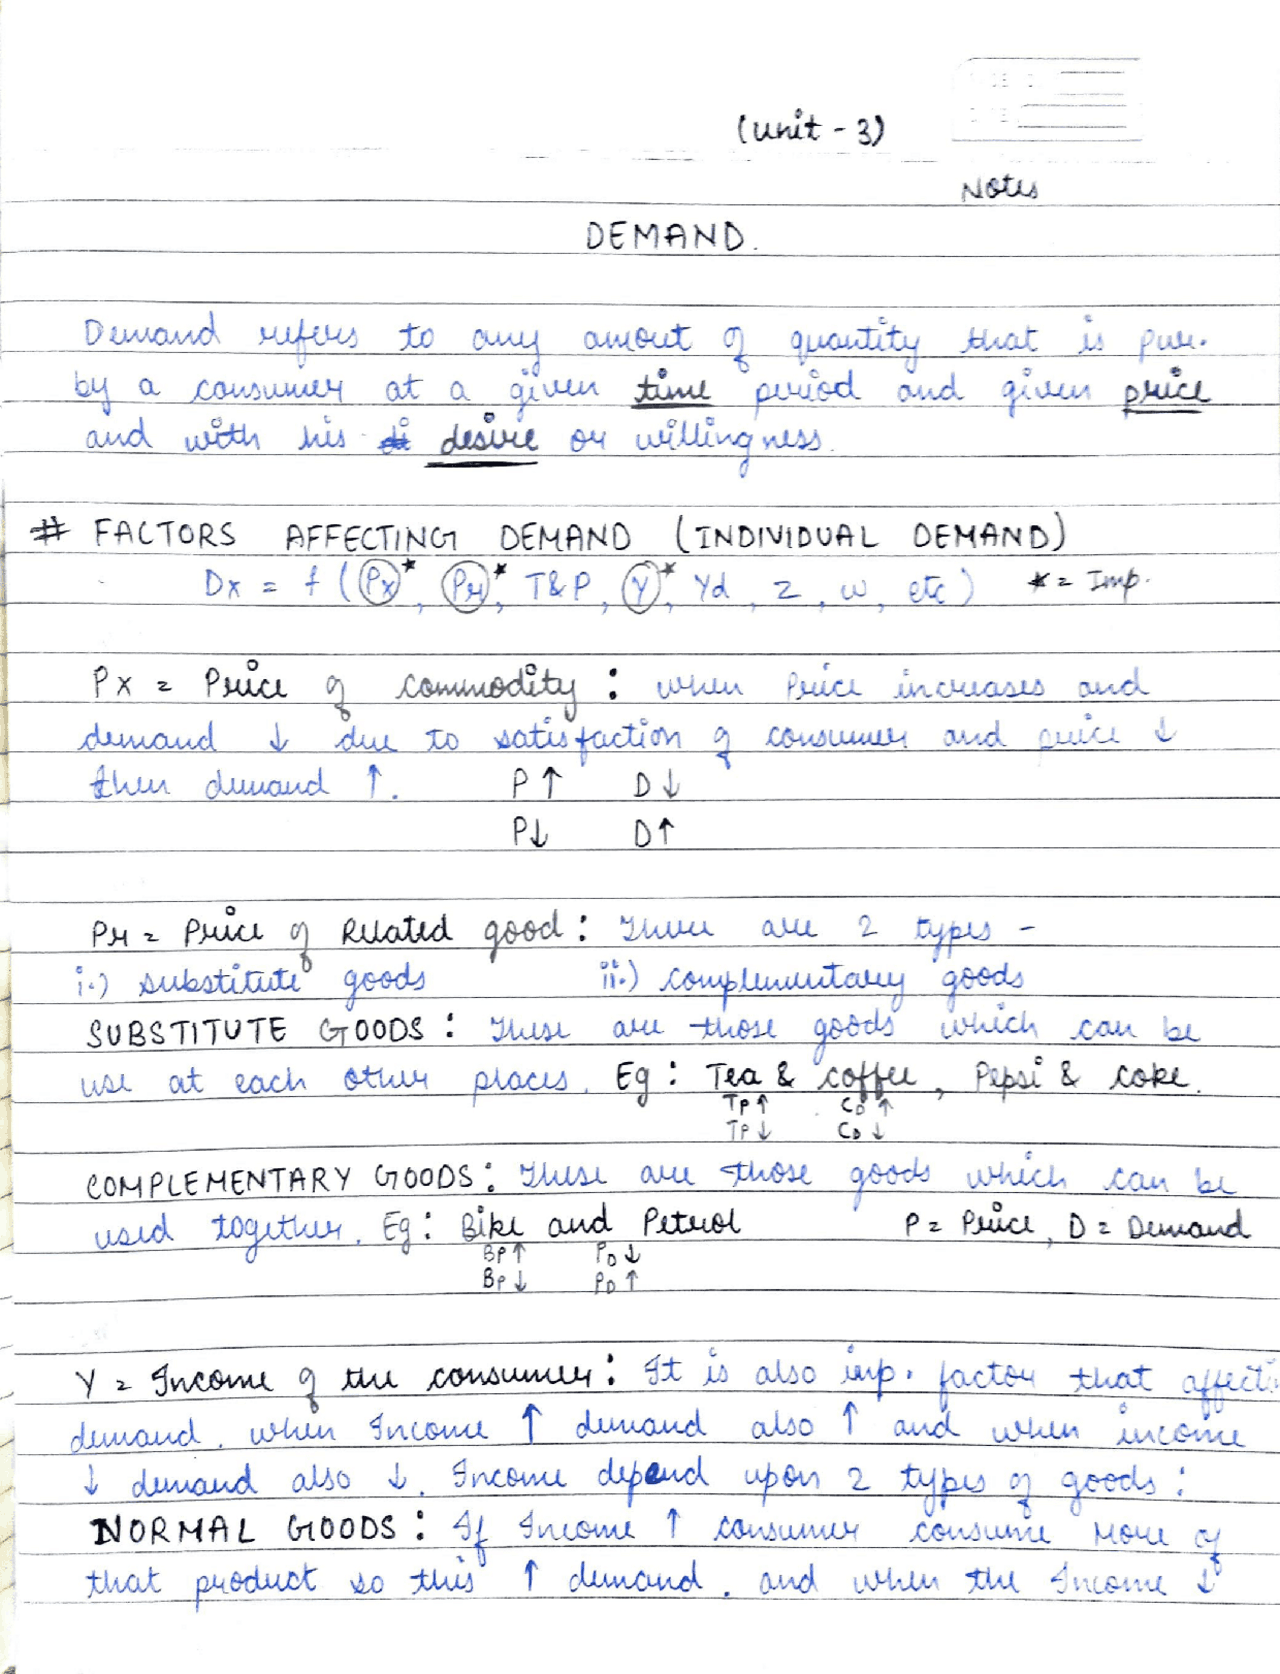 (unit - 3)
Notes
DEMAND.
Demand refers to any amout of quantity that is pur.
by a consumer at a given time period and given price
and with his desire or willingness.
# FACTORS AFFECTING DEMAND (INDIVIDUAL DEMAND)
Dx = f (Px*, Pr*, T&P, Y*, Yd, z, w, etc) * = Imp.
Px = Price of commodity : when Price increases and
demand ↓ due to satisfaction of consumer and price ↓
then demand ↑. P ↑ D ↓
P↓ D↑
Pr = Price of Related good : There are 2 types -
i.) substitute goods ii.) complementary goods
SUBSTITUTE GOODS : These are those goods which can be
use at each other places. Eg : Tea & coffee, Pepsi & coke.
TP ↑ CD ↑
TP ↓ CD ↓
COMPLEMENTARY GOODS : These are those goods which can be
used together. Eg : Bike and Petrol P = Price, D = Demand
BP ↑ PD ↓
BP ↓ PD ↑
Y = Income of the consumer : It is also imp. factor that affects
demand. when Income ↑ demand also ↑ and when income
↓ demand also ↓. Income depend upon 2 types of goods :
NORMAL GOODS : If Income ↑ consumer consume more of
that product so this ↑ demand. and when the Income ↓